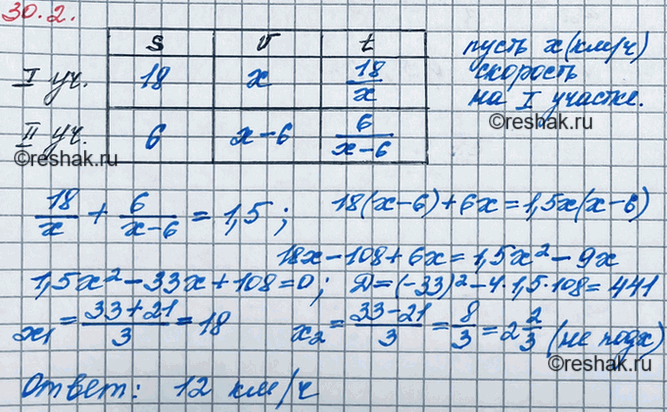 30.2.
s v t
I уч. 18 x 18/x
II уч. 6 x-6 6/(x-6)
пусть x(км/ч)
скорость
на I участке.
©reshak.ru
©reshak.ru
18/x + 6/(x-6) = 1,5; 18(x-6)+6x=1,5x(x-6)
18x-108+6x=1,5x²-9x
1,5x²-33x+108=0; Д=(-33)²-4·1,5·108=441
x₁ = (33+21)/3 = 18 x₂ = (33-21)/3 = 8/3 = 2 2/3 (не подх)
©reshak.ru
Ответ: 12 км/ч